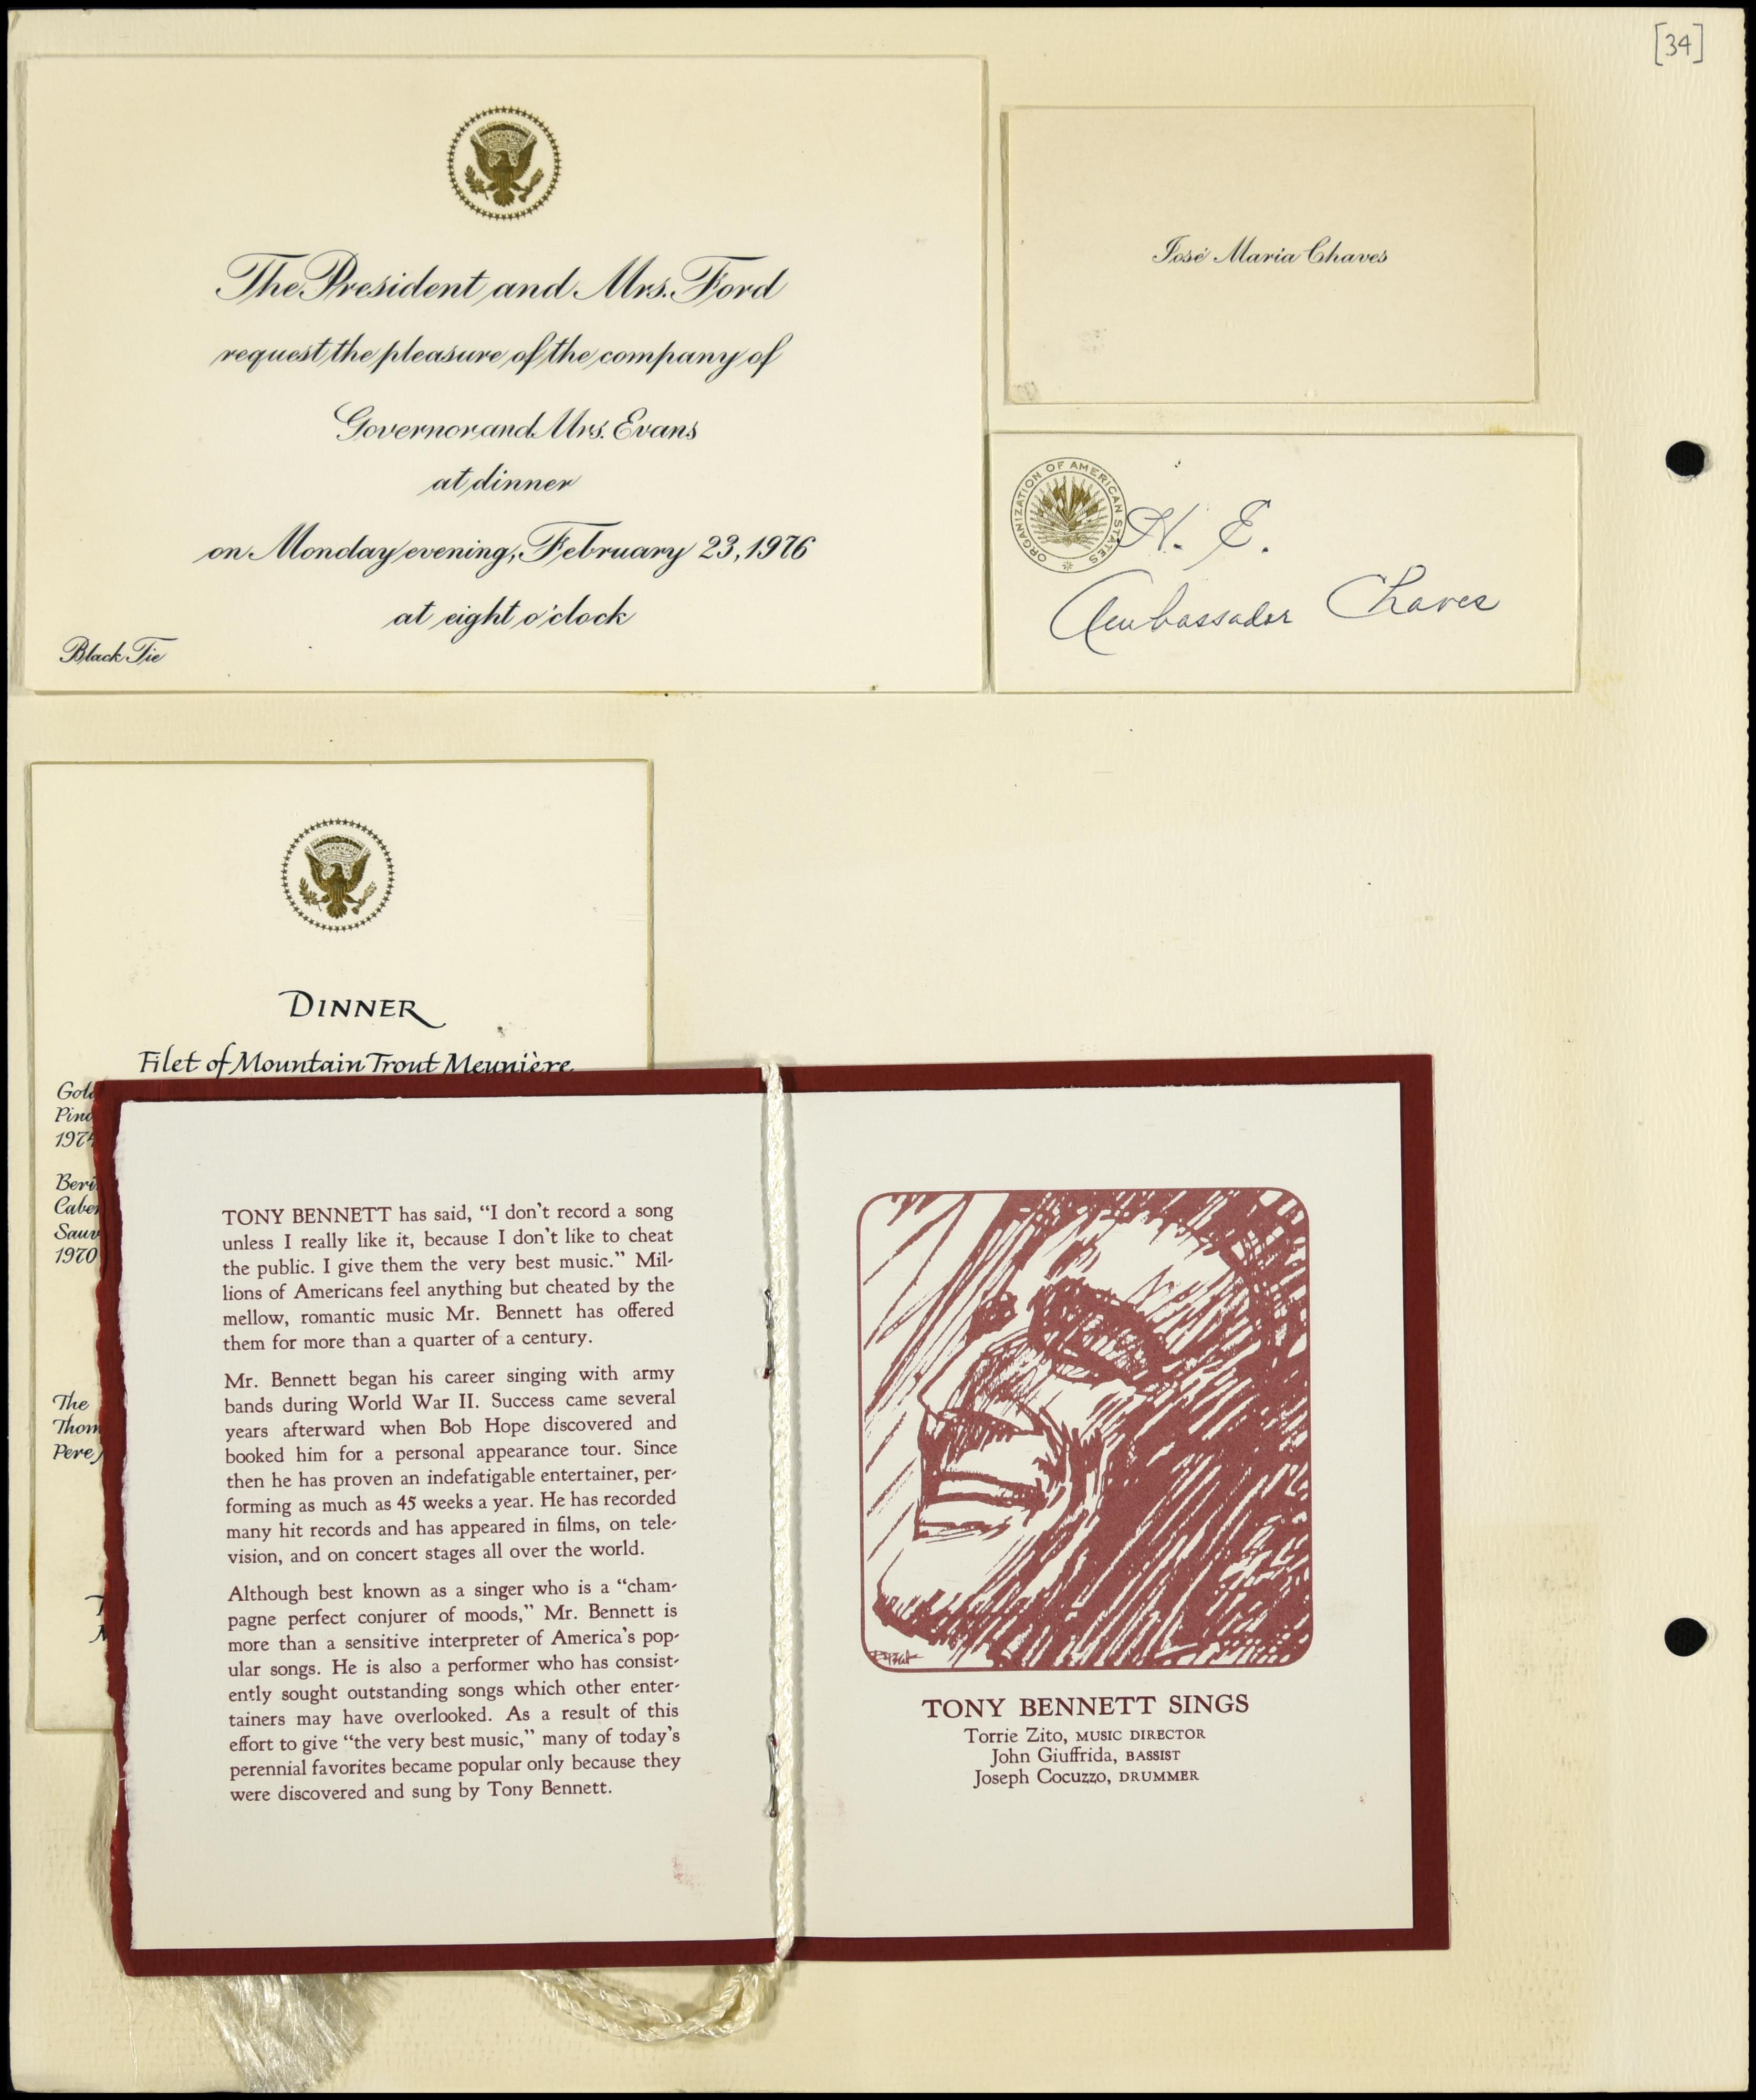 [34]
The President and Mrs. Ford
request the pleasure of the company of
Governor and Mrs. Evans
at dinner
on Monday evening, February 23, 1976
at eight o'clock
Black Tie
José Maria Chaves
ORGANIZATION OF AMERICAN STATES
H. E.
Ambassador Chaves
DINNER
Filet of Mountain Trout Meunière
1970
The
TONY BENNETT has said, “I don't record a song
unless I really like it, because I don't like to cheat
the public. I give them the very best music.” Mil-
lions of Americans feel anything but cheated by the
mellow, romantic music Mr. Bennett has offered
them for more than a quarter of a century.
Mr. Bennett began his career singing with army
bands during World War II. Success came several
years afterward when Bob Hope discovered and
booked him for a personal appearance tour. Since
then he has proven an indefatigable entertainer, per-
forming as much as 45 weeks a year. He has recorded
many hit records and has appeared in films, on tele-
vision, and on concert stages all over the world.
Although best known as a singer who is a “cham-
pagne perfect conjurer of moods,” Mr. Bennett is
more than a sensitive interpreter of America's pop-
ular songs. He is also a performer who has consist-
ently sought outstanding songs which other enter-
tainers may have overlooked. As a result of this
effort to give “the very best music,” many of today's
perennial favorites became popular only because they
were discovered and sung by Tony Bennett.
TONY BENNETT SINGS
Torrie Zito, MUSIC DIRECTOR
John Giuffrida, BASSIST
Joseph Cocuzzo, DRUMMER